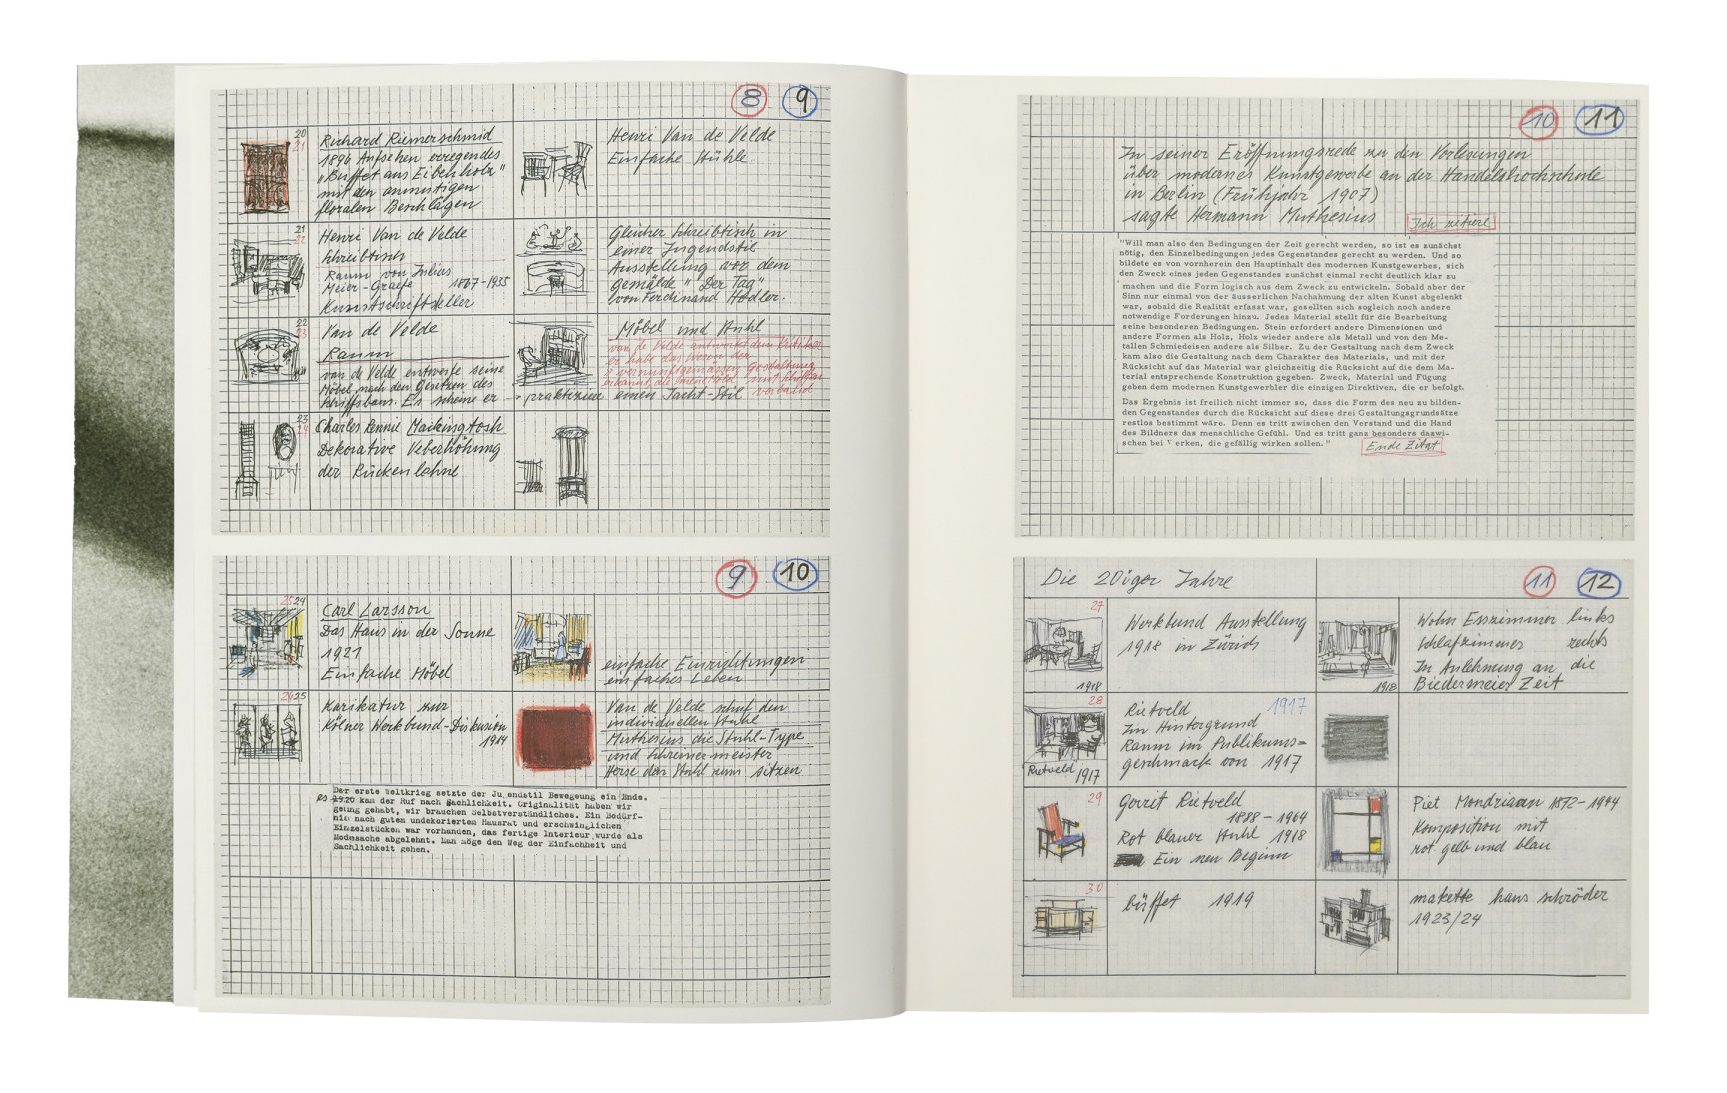 8 9
20
21
Richard Riemerschmid
1896 Aufsehen erregendes
"Buffet aus Eibenholz"
mit den anmutigen
floralen Beschlägen
Henri Van de Velde
Einfache Stühle
21
22
Henri Van de Velde
Schreibtisch
Raum von Julius
Meier-Graefe 1867-1935
Kunstschriftsteller
Gleicher Schreibtisch in
einer Jugendstil
Ausstellung vor dem
gemälde "Der Tag"
von Ferdinand Hodler.
22
23
Van de Velde
Raum
van de Velde entwerfe seine
Möbel nach den Gesetzen des
Schiffsbaus. Es scheine er
Möbel und Stuhl
van de Velde antwortet dem Kritiker
er habe das Wesen der
vernunftgemässen Gestaltung
erkannt, die seine Möbel mit Schiffen
verband
praktiziere einen Jacht-Stil
23
24
Charles Rennie Mackingtosh
Dekorative Ueberhöhung
der Rückenlehne
9 10
25 24
Carl Larsson
Das Haus in der Sonne
1921
Einfache Möbel
einfache Einrichtungen
einfaches Leben
26 25
Karikatur zur
Kölner Werkbund-Diskusion
1914
Van de Velde schuf den
individuellen Stuhl
Muthesius die Stuhl-Type
und Schreinermeister
Hesse den Stuhl zum sitzen
Der erste Weltkrieg setzte der Ju endstil Bewegeung ein Ende.
es 1920 kam der Ruf nach Sachlichkeit. Originalität haben wir
geung gehabt, wir brauchen Selbstverständliches. Ein Bedürf-
nis nach gutem undekoriertem Hausrat und erschwinglichen
Einzelstücken war vorhanden, das fertige Interieur wurde als
Modesache abgelehnt. Man möge den Weg der Einfachheit und
Sachlichkeit gehen.
10 11
In seiner Eröffnungsrede zu den Vorlesungen
über modernes Kunstgewerbe an der Handelshochschule
in Berlin (Frühjahr 1907)
sagte Hermann Muthesius Ich zitiere
"Will man also den Bedingungen der Zeit gerecht werden, so ist es zunächst
nötig, den Einzelbedingungen jedes Gegenstandes gerecht zu werden. Und so
bildete es von vornherein den Hauptinhalt des modernen Kunstgewerbes, sich
den Zweck eines jeden Gegenstandes zunächst einmal recht deutlich klar zu
machen und die Form logisch aus dem Zweck zu entwickeln. Sobald aber der
Sinn nur einmal von der äusserlichen Nachahmung der alten Kunst abgelenkt
war, sobald die Realität erfasst war, gesellten sich sogleich noch andere
notwendige Forderungen hinzu. Jedes Material stellt für die Bearbeitung
seine besonderen Bedingungen. Stein erfordert andere Dimensionen und
andere Formen als Holz, Holz wieder andere als Metall und von den Me-
tallen Schmiedeisen andere als Silber. Zu der Gestaltung nach dem Zweck
kam also die Gestaltung nach dem Charakter des Materials, und mit der
Rücksicht auf das Material war gleichzeitig die Rücksicht auf die dem Ma-
terial entsprechende Konstruktion gegeben. Zweck, Material und Fügung
geben dem modernen Kunstgewerbler die einzigen Direktiven, die er befolgt.
Das Ergebnis ist freilich nicht immer so, dass die Form des neu zu bilden-
den Gegenstandes durch die Rücksicht auf diese drei Gestaltungsgrundsätze
restlos bestimmt wäre. Denn es tritt zwischen den Verstand und die Hand
des Bildners das menschliche Gefühl. Und es tritt ganz besonders dazwi-
schen bei erken, die gefällig wirken sollen." Ende Zitat
Die 20iger Jahre 11 12
27
Werkbund Ausstellung
1918 in Zürich
1918
Wohn Esszimmer links
Schlafzimmer rechts
In Anlehnung an die
Biedermeier Zeit
1918
28
Rietveld 1917
Im Hintergrund
Raum im Publikums=
geschmack von 1917
Rietveld 1917
29
Gerrit Rietveld
1888-1964
Rot blauer Stuhl 1918
Ein neu Beginn
Piet Mondriaan 1872-1944
Komposition mit
rot gelb und blau
30
büffet 1919
makette haus schröder
1923/24